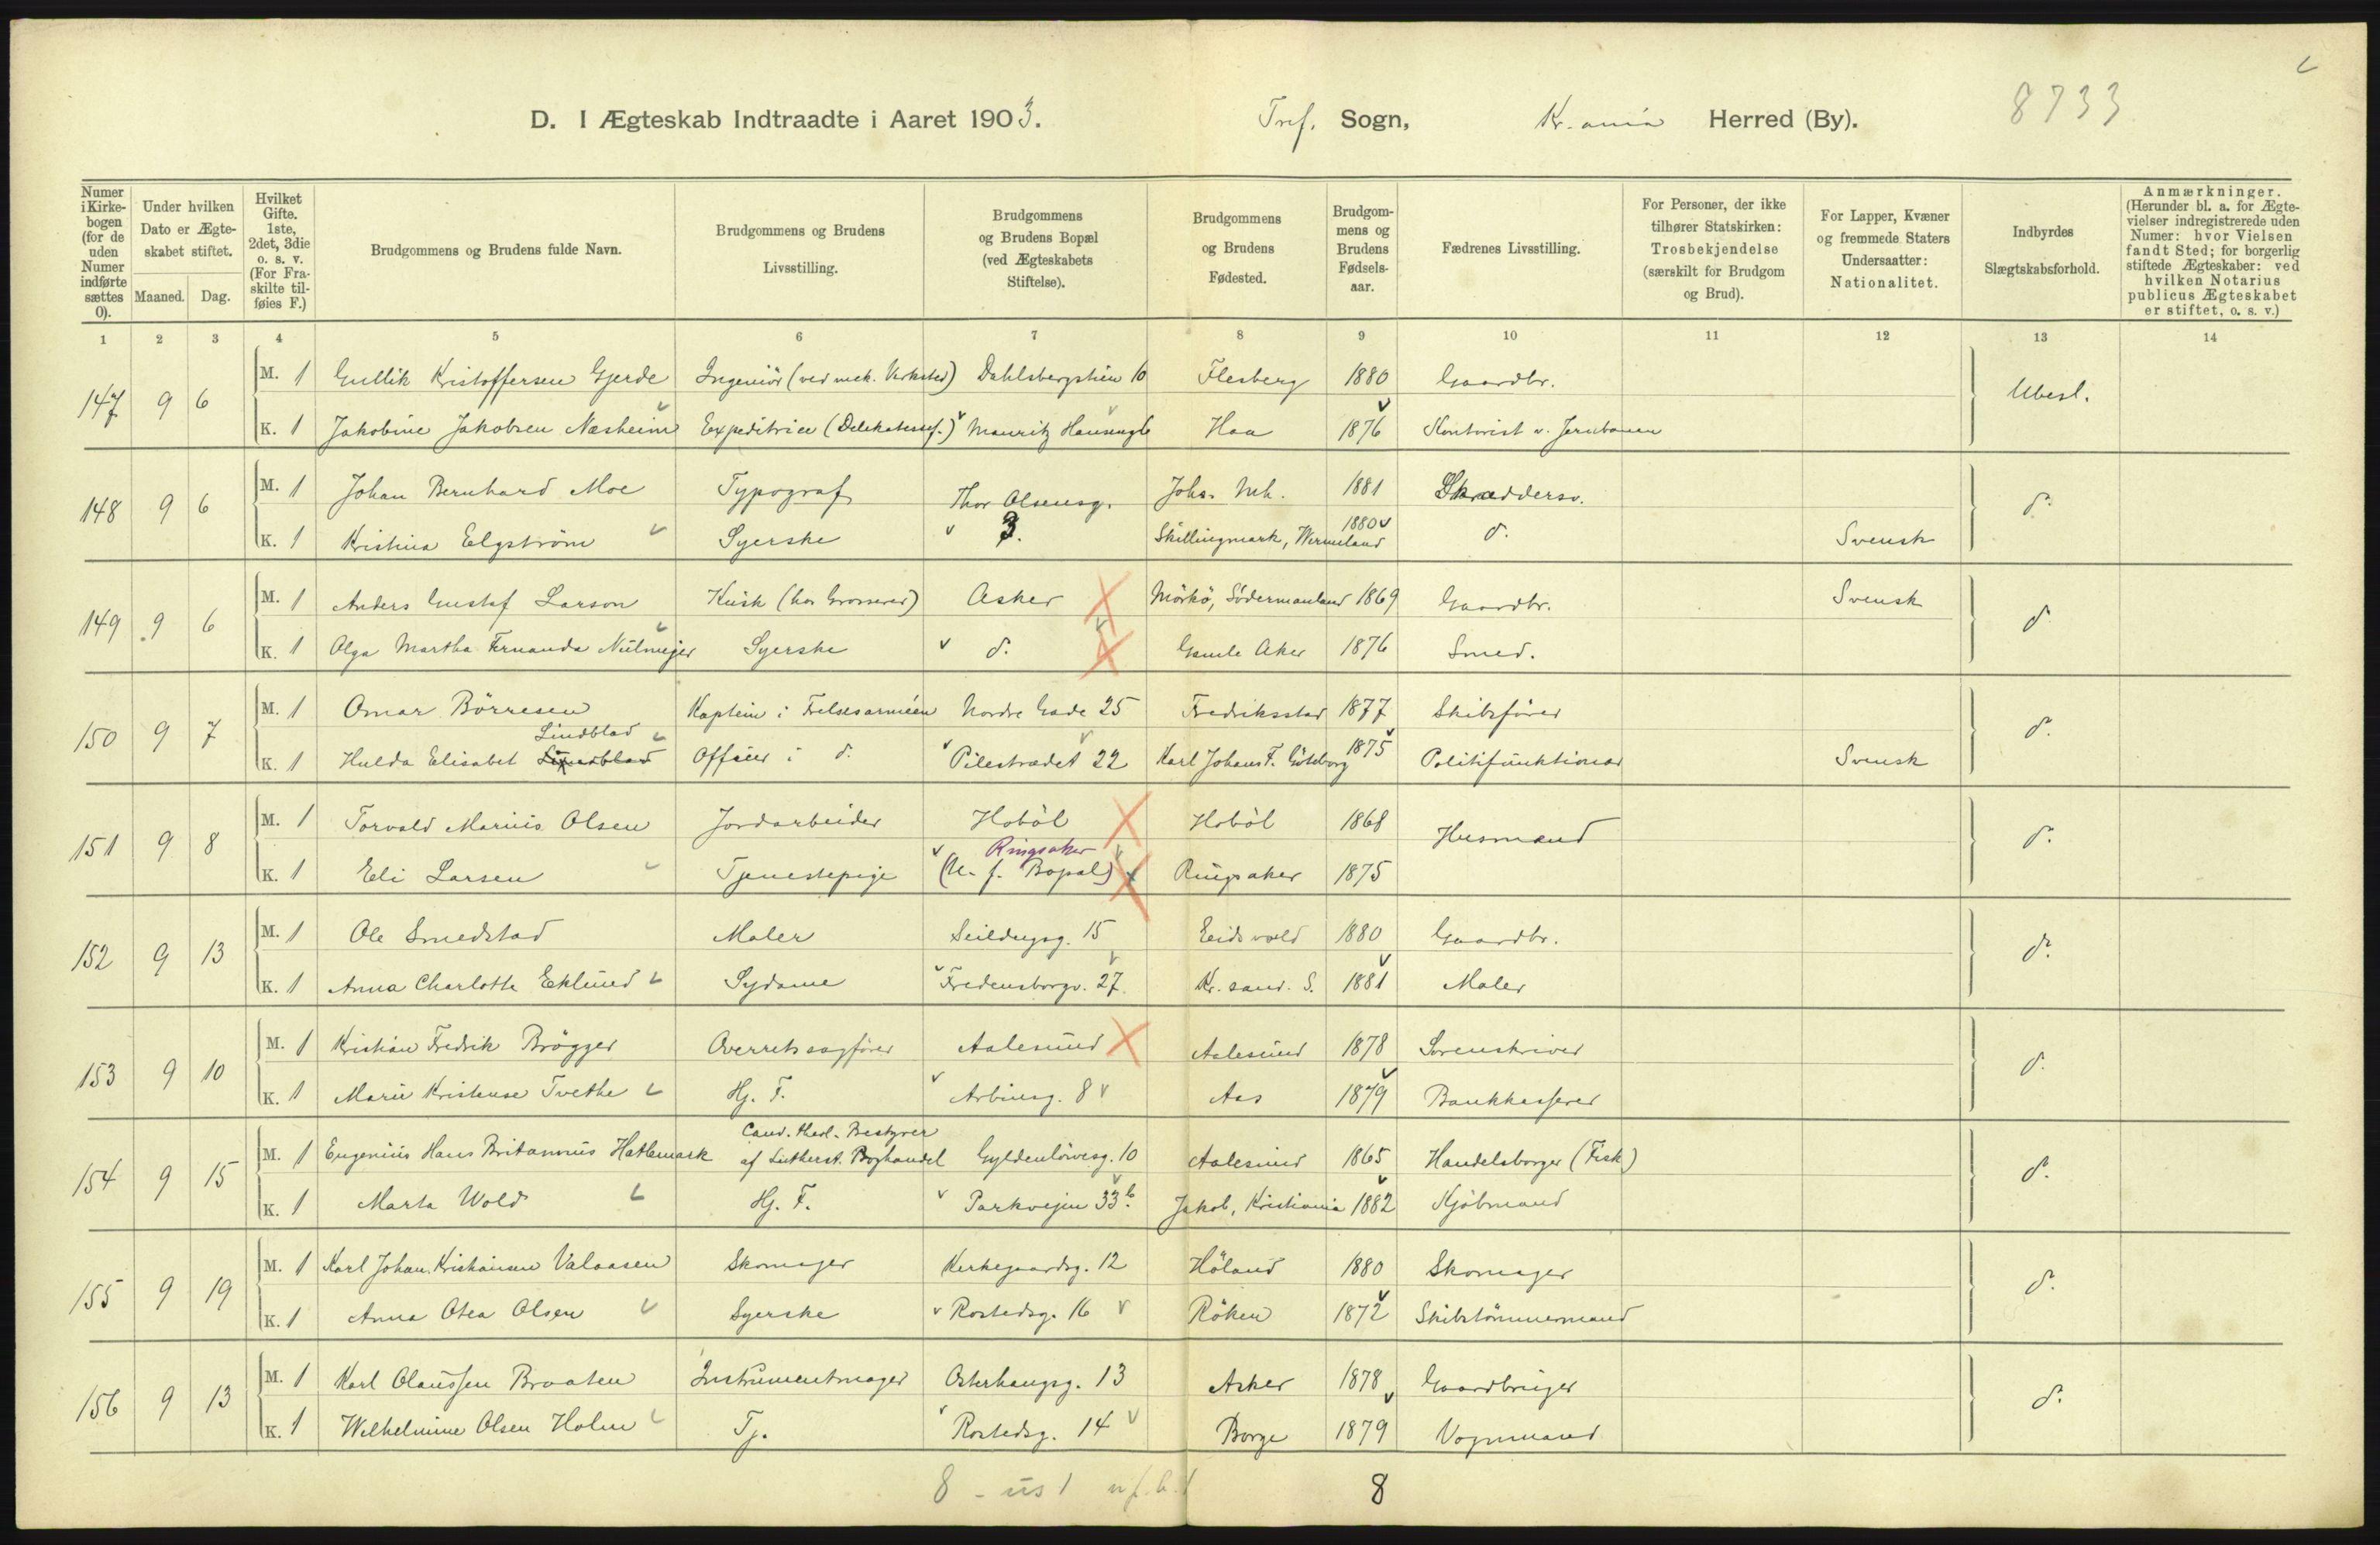 8733
D. I Ægteskab Indtraadte i Aaret 1903. Tref. Sogn, Kr.ania Herred (By).
Numer i Kirkebogen (for de uden Numer indførte sættes 0).
Under hvilken Dato er Ægteskabet stiftet.
Maaned. Dag.
Hvilket Gifte. 1ste, 2det, 3die o. s. v. (For Fraskilte tilføies F.)
Brudgommens og Brudens fulde Navn.
Brudgommens og Brudens Livsstilling.
Brudgommens og Brudens Bopæl (ved Ægteskabets Stiftelse).
Brudgommens og Brudens Fødested.
Brudgommens og Brudens Fødselsaar.
Fædrenes Livsstilling.
For Personer, der ikke tilhører Statskirken: Trosbekjendelse (særskilt for Brudgom og Brud).
For Lapper, Kvæner og fremmede Staters Undersaatter: Nationalitet.
Indbyrdes Slægtskabsforhold.
Anmærkninger. (Herunder bl. a. for Ægtevielser indregistrerede uden Numer: hvor Vielsen fandt Sted; for borgerlig stiftede Ægteskaber: ved hvilken Notarius publicus Ægteskabet er stiftet, o. s. v.)
1 2 3 4 5 6 7 8 9 10 11 12 13 14
147 9 6 M. 1 Gullik Kristoffersen Gjerde Ingeniör (ved mek. Verksted) Dahlsbergstien 10 Flesberg 1880 Gaardbr. Ubesl.
K. 1 Jakobine Jakobsen Næsheim Expeditrice (Delikatessef.) Mauritz Hansensg 6 Haa 1876 Kontorist v. Jernbanen
148 9 6 M. 1 Johan Bernhard Moe Typograf Thor Olsensg. Johs. Mh. 1881 Skræddersv. d.
K. 1 Kristina Elgström Syerske 3. Skillingmark, Wermland 1880 d. Svensk
149 9 6 M. 1 Anders Gustaf Larson Kusk (hos Grosserer) Asker Mörkö, Södermanland 1869 Gaardbr. Svensk d.
K. 1 Olga Martha Fernanda Nülmeijer Syerske d. Gamle Aker 1876 Smed.
150 9 7 M. 1 Omar Börresen Kaptein i Frelsesarméen Nordre Gade 25 Fredriksstad 1877 Skibsförer d.
Lindblad
K. 1 Hulda Elisabet Officer i d. Pilestrædet 22 Karl Johans F. Göteborg 1875 Politifunktionær Svensk
151 9 8 M. 1 Torvald Marius Olsen Jordarbeider Hoböl Hoböl 1868 Husmand d.
Ringsaker
K. 1 Eli Larsen Tjenestepige (U. f. Bopæl) Ringsaker 1875
152 9 13 M. 1 Ole Smedstad Maler Seildugsg. 15 Eidsvold 1880 Gaardbr. d.
K. 1 Anna Charlotte Eklund Sydame Fredensborgv. 27 Kr.sand. S. 1881 Maler
153 9 10 M. 1 Kristian Fredrik Brögger Overretssagförer Aalesund Aalesund 1878 Sorenskriver d.
K. 1 Marie Kristense Tvethe Hj. F. Arbiensg. 8 Aas 1879 Bankkasserer
Cand. theol. Bestyrer
154 9 15 M. 1 Eugenius Hans Britannus Hatlemark af Lutherst. Boghandel Gyldenlövesg. 10 Aalesund 1865 Handelsborger (Fisk) d.
K. 1 Marta Wold Hj. F. Parkvejen 33b. Jakob, Kristiania 1882 Kjöbmand
155 9 19 M. 1 Karl Johan Kristiansen Valaasen Skomager Kirkegaardsg. 12 Höland 1880 Skomager d.
K. 1 Anna Otea Olsen Syerske Rostedsg. 16 Röken 1872 Skibstömmermand
156 9 13 M. 1 Karl Olaussen Braaten Instrumentmager Osterhausg. 13 Asker 1878 Gaardbruger d.
K. 1 Wilhelmine Olsen Holm Tj. Rostedsg. 14 Borge 1879 Vognmand
8 - us 1 8